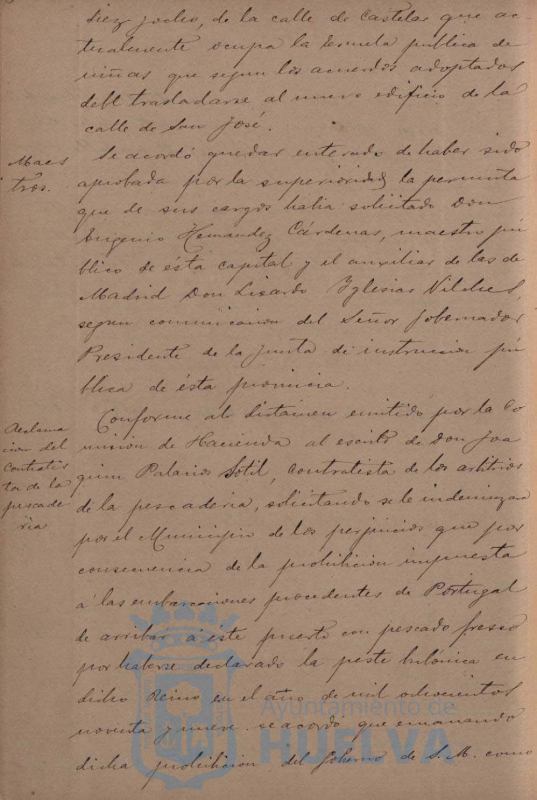 diez y ocho, de la calle de Castelar que ac-
tualmente ocupa la Escuela pública de
niñas que segun los acuerdos adoptados
debe trasladarse al nuevo edificio de la
calle de San José.
Maes
tros.
Se acordó quedar enterado de haber sido
aprobada por la superioridad la permuta
que de sus cargos habia solicitado Don
Eugenio Hernandez Cárdenas, maestro pú-
blico de ésta capital y el auxiliar de las de
Madrid Don Lisardo Yglesias Vilches,
segun comunicacion del Señor Gobernador
Presidente de la Junta de instruccion pú-
blica de ésta provincia.
Reclama
cion del
contratis
ta de la
pescade
ria
Conforme al dictamen emitido por la Co
mision de Hacienda al escrito de Don Joa
quin Palacios Sotil, contratista de los arbitrios
de la pescaderia, solicitando se le indemnizara
por el Municipio de los perjuicios que por
consecuencia de la prohibicion impuesta
á las embarcaciones procedentes de Portugal
de arribar á éste puerto con pescado fresco
por haberse declarado la peste bubónica en
dicho Reino en el año de mil ochocientos
noventa y nueve. se acordó que emanando
dicha prohibicion del Gobierno de S. M. como
Ayuntamiento de
HUELVA